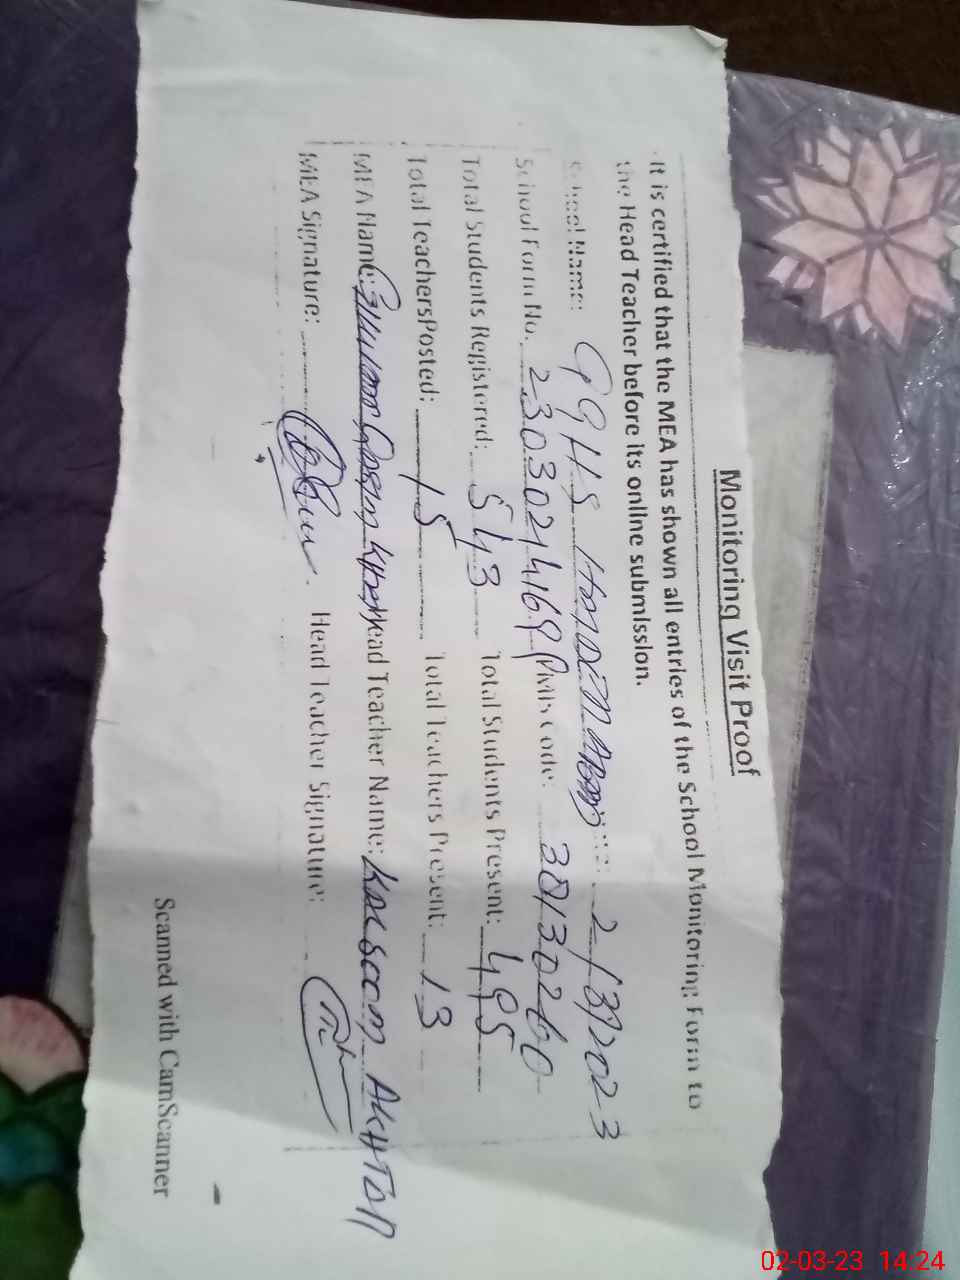 Monitoring Visit Proof
It is certified that the MEA has shown all entries of the School Monitoring Form to
the Head Teacher before its online submission.
School Name: GGHS 2/3/2023
School Form No. 2303024169 PMIS Code: 38130260
Total Students Registered: 543 Total Students Present: 495
Total TeachersPosted: 15 Total Teachers Present: 13
MEA Name: Head Teacher Name: Kalsoom Akhtar
MEA Signature: Head Teacher Signature:
Scanned with CamScanner
02-03-23 14:24